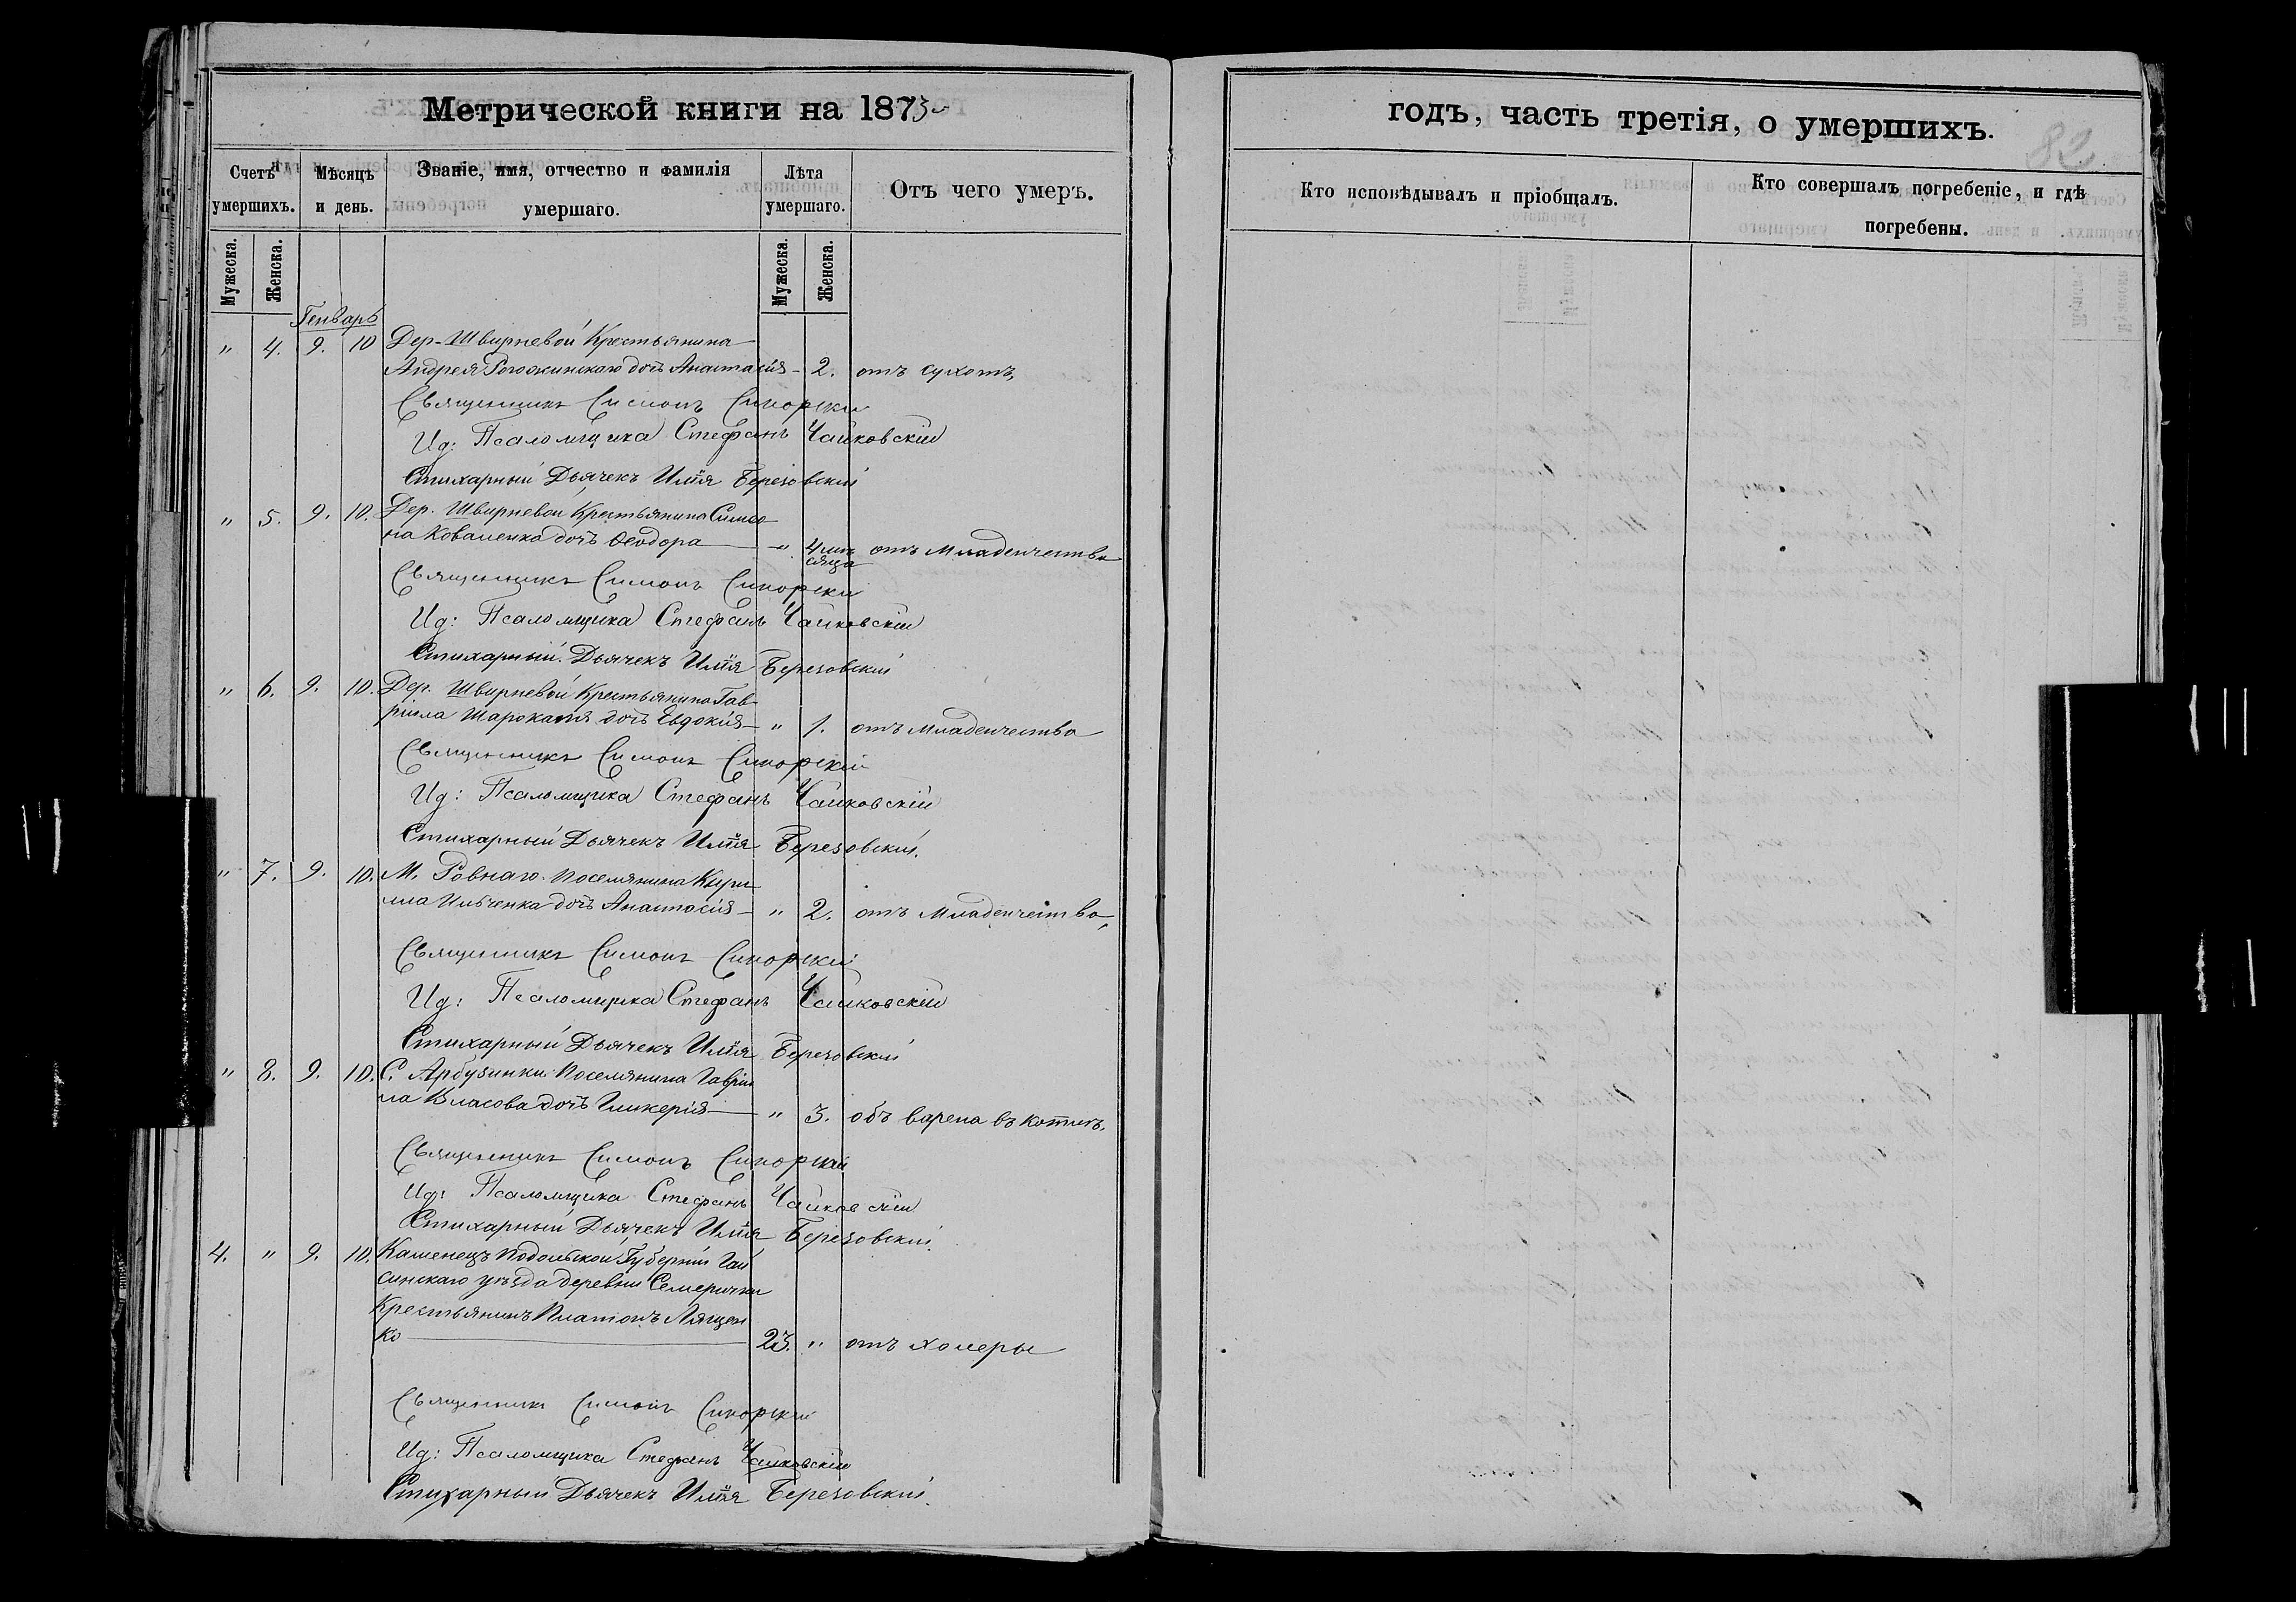 Метрической книги на 1873
годъ, часть третія, о умершихъ.
82
Счетъ умершихъ.
Мѣсяцъ и день.
Званіе, имя, отчество и фамилія умершаго.
Лѣта умершаго.
Отъ чего умеръ.
Кто исповѣдывалъ и пріобщалъ.
Кто совершалъ погребеніе, и гдѣ погребены.
Мужеска.
Женска.
Мужеска.
Женска.
Генварь
" 4. 9. 10 Дер. Швырневой Крестьянина
Андрея Рогожинскаго дочь Анастасія - 2. отъ сухотъ,
Священникъ Симонъ Сикорскій
Ид: Псаломщика Стефанъ Чайковскій
Стихарный Дьячекъ Илія Березовскій
" 5. 9. 10. Дер. Швырневой Крестьянина Симео
на Коваленка дочь Ѳеодора " 4 мѣ
сяца отъ младенчества
Священникъ Симонъ Сикорскій
Ид: Псаломщика Стефанъ Чайковскій
Стихарный Дьячекъ Илія Березовскій
" 6. 9. 10. Дер. Швырневой Крестьянина Гав-
ріила дочь Евдокія " 1. отъ младенчества
Священникъ Симонъ Сикорскій
Ид: Псаломщика Стефанъ Чайковскій
Стихарный Дьячекъ Илія Березовскій.
" 7. 9. 10. М. Ровнаго поселянина Кири
лла Ильченка дочь Анастасія " 2. отъ младенчества,
Священникъ Симонъ Сикорскій
Ид: Псаломщика Стефанъ Чайковскій
Стихарный Дьячекъ Илія Березовскій
" 8. 9. 10. С. Арбузинки поселянина Гавріи
ла Власова дочь Гликерія " 3. объ варена въ котлѣ.
Священникъ Симонъ Сикорскій
Ид: Псаломщика Стефанъ Чайковскій
Стихарный Дьячекъ Илія Березовскій.
4. " 9. 10. Каменецъ Подольской Губерніи Гай
синскаго уѣзда деревни
Крестьянинъ Платонъ Лящен
ко 23. " отъ холеры
Священникъ Симонъ Сикорскій
Ид: Псаломщика Стефанъ Чайковскій
Стихарный Дьячекъ Илія Березовскій.